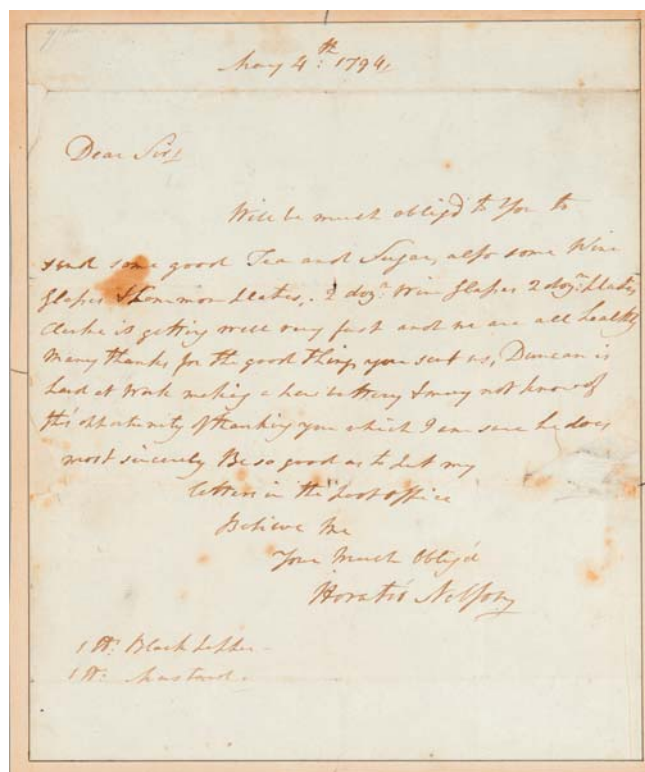 May 4th: 1794,
Dear Sir,
Will be much obliged to You to
send some good Tea and Sugar, also some Wine
Glasses & Common Plates, 2 dozn. Wine Glasses 2 dozn: Plates,
Clarke is getting well very fast and we are all healthy
Many thanks for the good things you sent us, Duncan is
hard at work making a new battery & may not know of
this opportunity of thanking you which I am sure he does
most sincerely Be so good as to Put my
letters in the Post office
Believe Me
Your Much Oblig'd
Horatio Nelson
1 lb: Black Pepper
1 lb: Mustard.